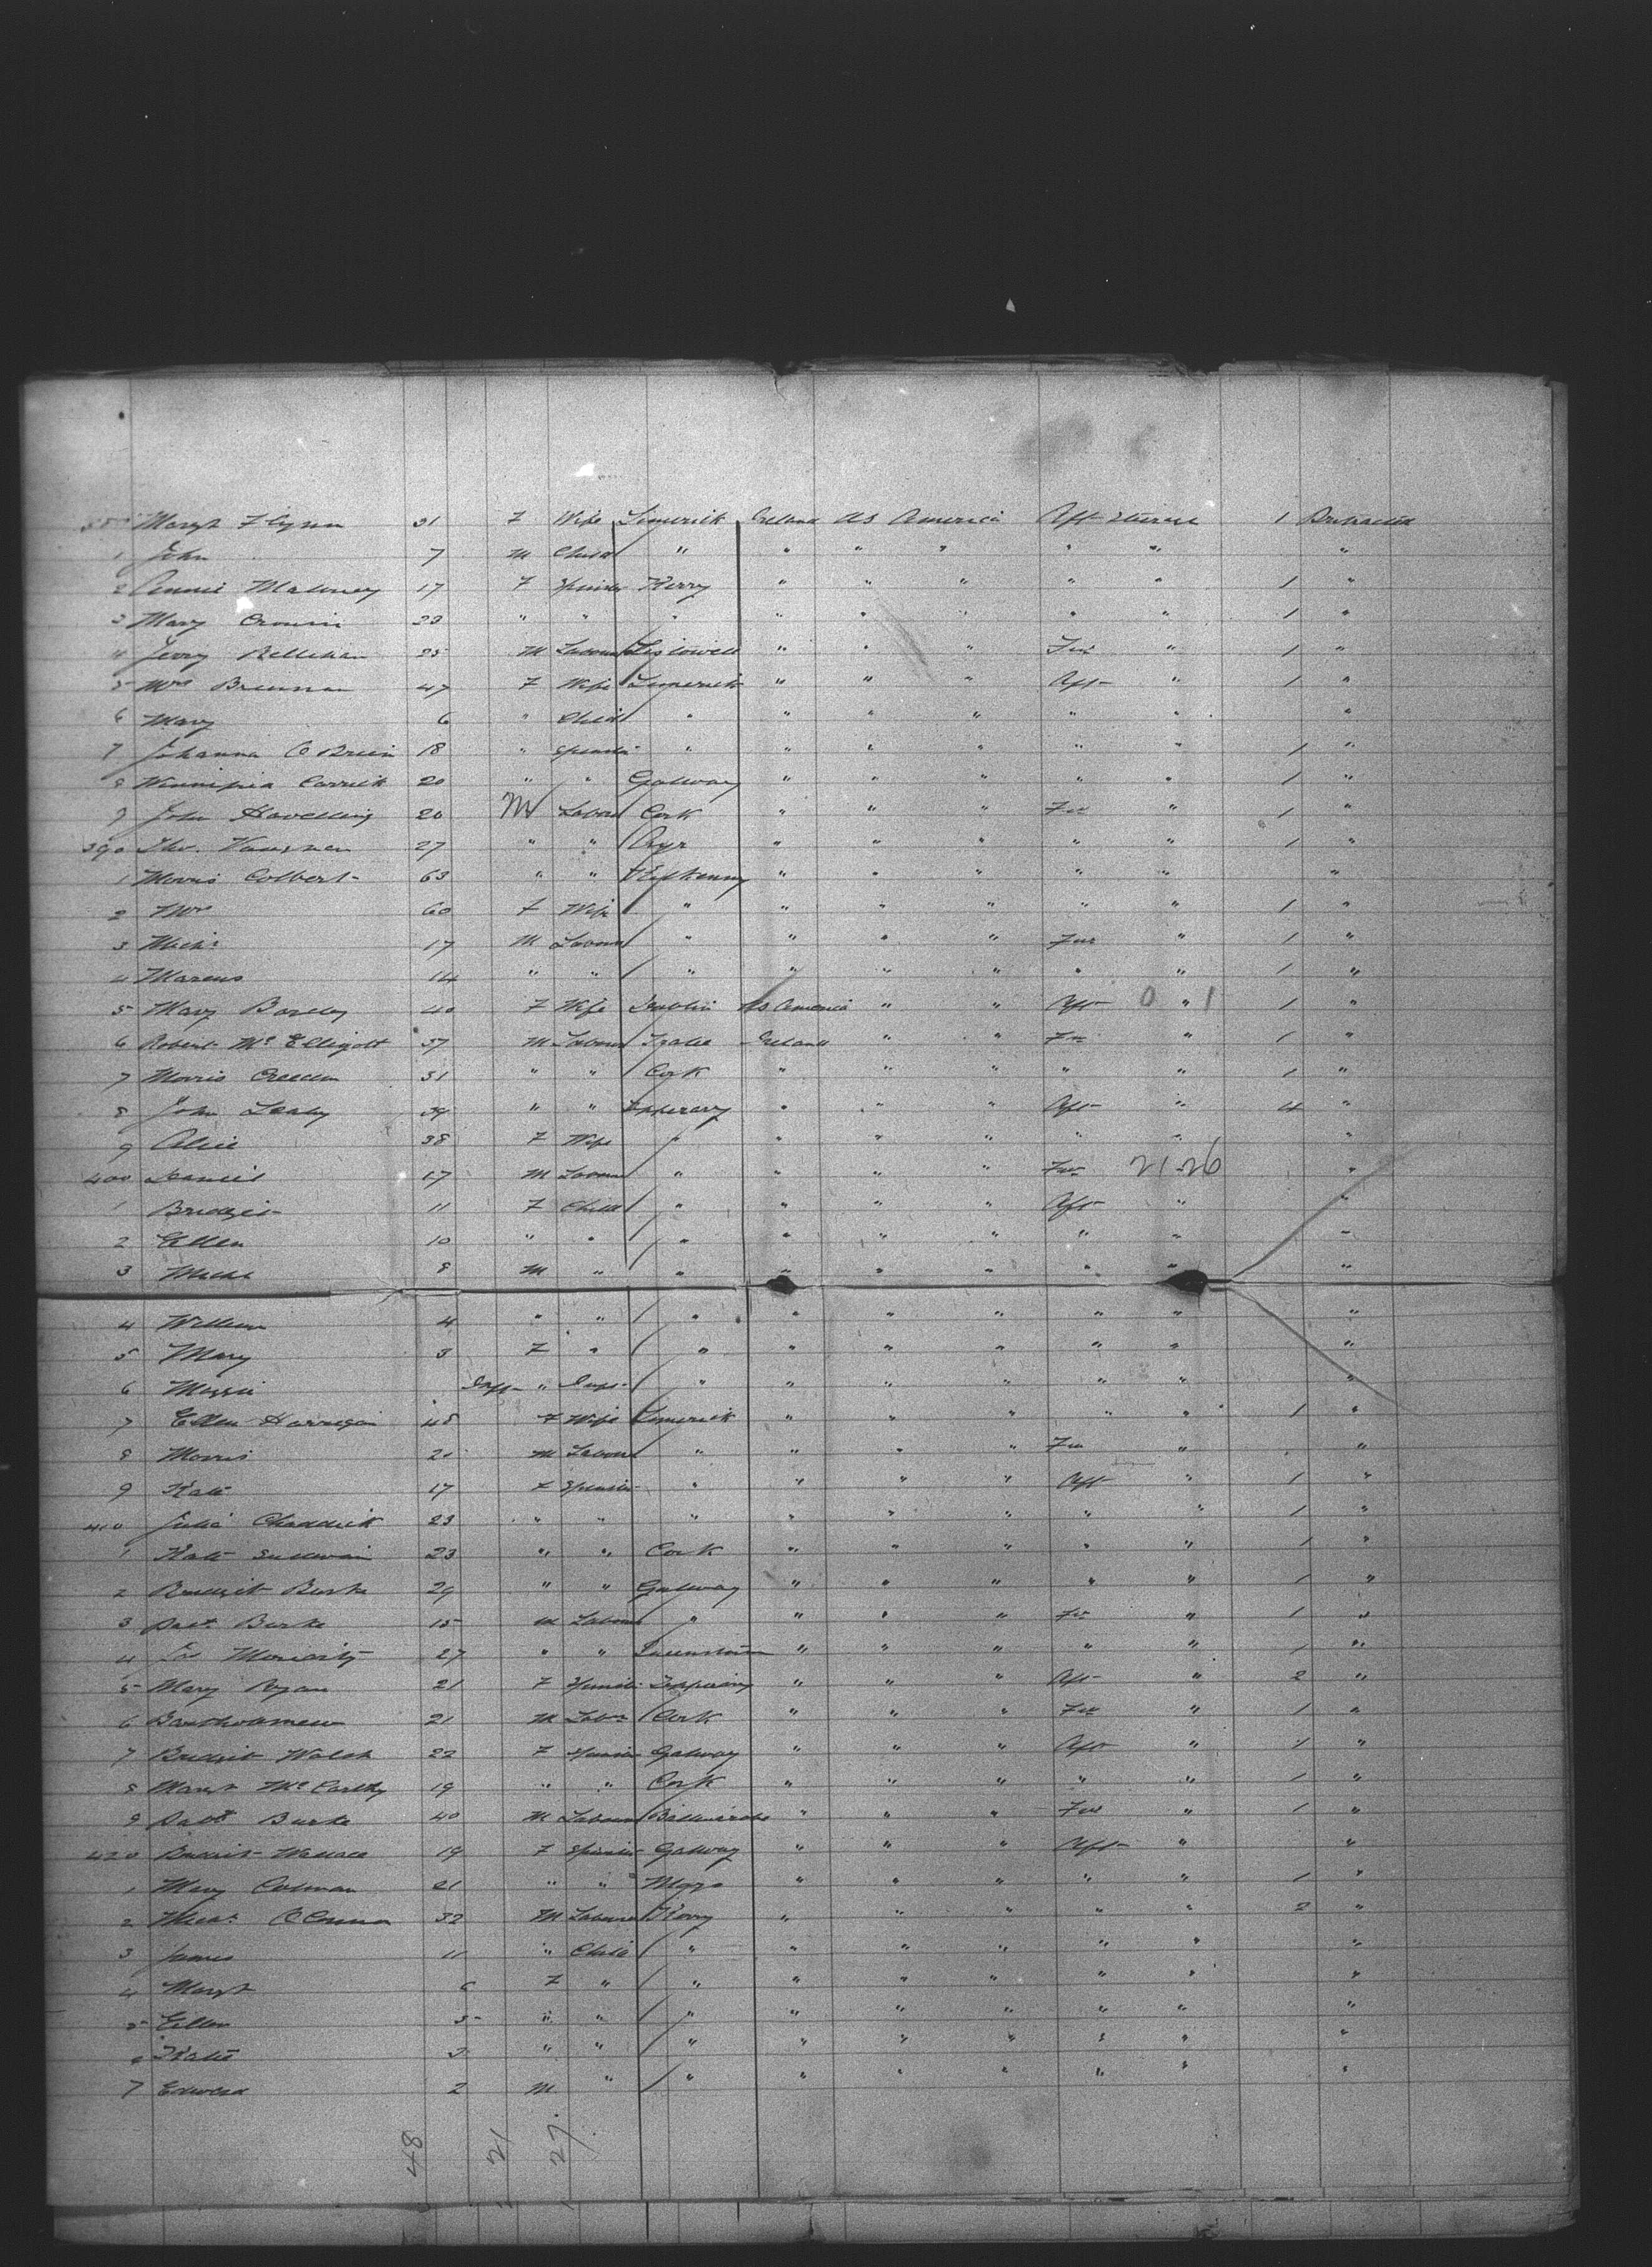 380 Margt Flynn 31 F Wife Limerick Ireland US America Aft Steerage 1 Protracted
1 John 7 M Child " " " " " " "
2 Annie Maloney 17 F Spinster Kerry " " " " " 1 "
3 Mary Cronin 23 " " " " " " " " 1 "
4 Jerry Bellihan 25 M Labour Listowell " " " For " 1 "
5 Mrs Brennan 47 F Wife Limerick " " " Aft " 1 "
6 Mary 6 " Child " " " " " " "
7 Johanna O Brien 18 " Spinster " " " " " " 1 "
8 Carrick 20 " " Galway " " " " " 1 "
9 John 20 M Labour Cork " " " For " 1 "
390 Tho. 27 " " " " " " " 1 "
1 Morris Colbert 63 " " Kilkenny " " " " " "
2 Mrs 60 F Wife " " " " " " 1 "
3 Michl 17 M Labour " " " " For " 1 "
4 Marcus 14 " " " " " " " " 1 "
5 Mary 40 F Wife Dublin US America " " Aft 0 " 1 1 "
6 Robert Mc Elligott 37 M Labour Tralee Ireland " " For " 1 "
7 Morris Creedon 31 " " Cork " " " " " 1 "
8 John Leahy 39 " " Tipperary " " " Aft " 4 "
9 Alice 38 F Wife " " " " " " "
400 Daniel 17 M Labour " " " " For 21-26 "
1 Bridget 11 F Child " " " " Aft " "
2 Ellen 10 " " " " " " " " "
3 Michl 8 M " " " " " " " "
4 William 4 " " " " " " " " "
5 Mary 3 F " " " " " " " "
6 Maggie Inft " Inft " " " " " " "
7 Ellen Harrigan 45 F Wife Limerick " " " " " 1 "
8 Morris 21 M Labour " " " " For " "
9 Kate 17 F Spinster " " " " Aft " 1 "
410 Julia Chaddick 23 " " " " " " " " 1 "
1 Kate Sullivan 23 " " Cork " " " " " 1 "
2 Bridget Burke 29 " " Galway " " " " " 1 "
3 Patk Burke 15 M Labour " " " " For " 1 "
4 Moriarty 27 " " Queenstown " " " " " 1 "
5 Mary Ryan 21 F Spinster Tipperary " " " Aft " 2 "
6 Bartholomew 21 M Labr Cork " " " For " 1 "
7 Bridget Walsh 22 F Spinster Galway " " " Aft " 1 "
8 Margt Mc Carthy 19 " " Cork " " " " " 1 "
9 Patk Burke 40 M Labour " " " For " 1 "
420 Bridget Wallace 19 F Spinster Galway " " " Aft " "
1 Mary Colman 21 " " Mayo " " " " " 1 "
2 Michl O Connor 32 M Labour Kerry " " " " " 2 "
3 James 11 " Child " " " " " " "
4 Margt 6 F " " " " " " " "
5 Ellen 5 " " " " " " " " "
6 Katie 3 " " " " " " " " "
7 Edward 2 M " " " " " " " "
48 21 27